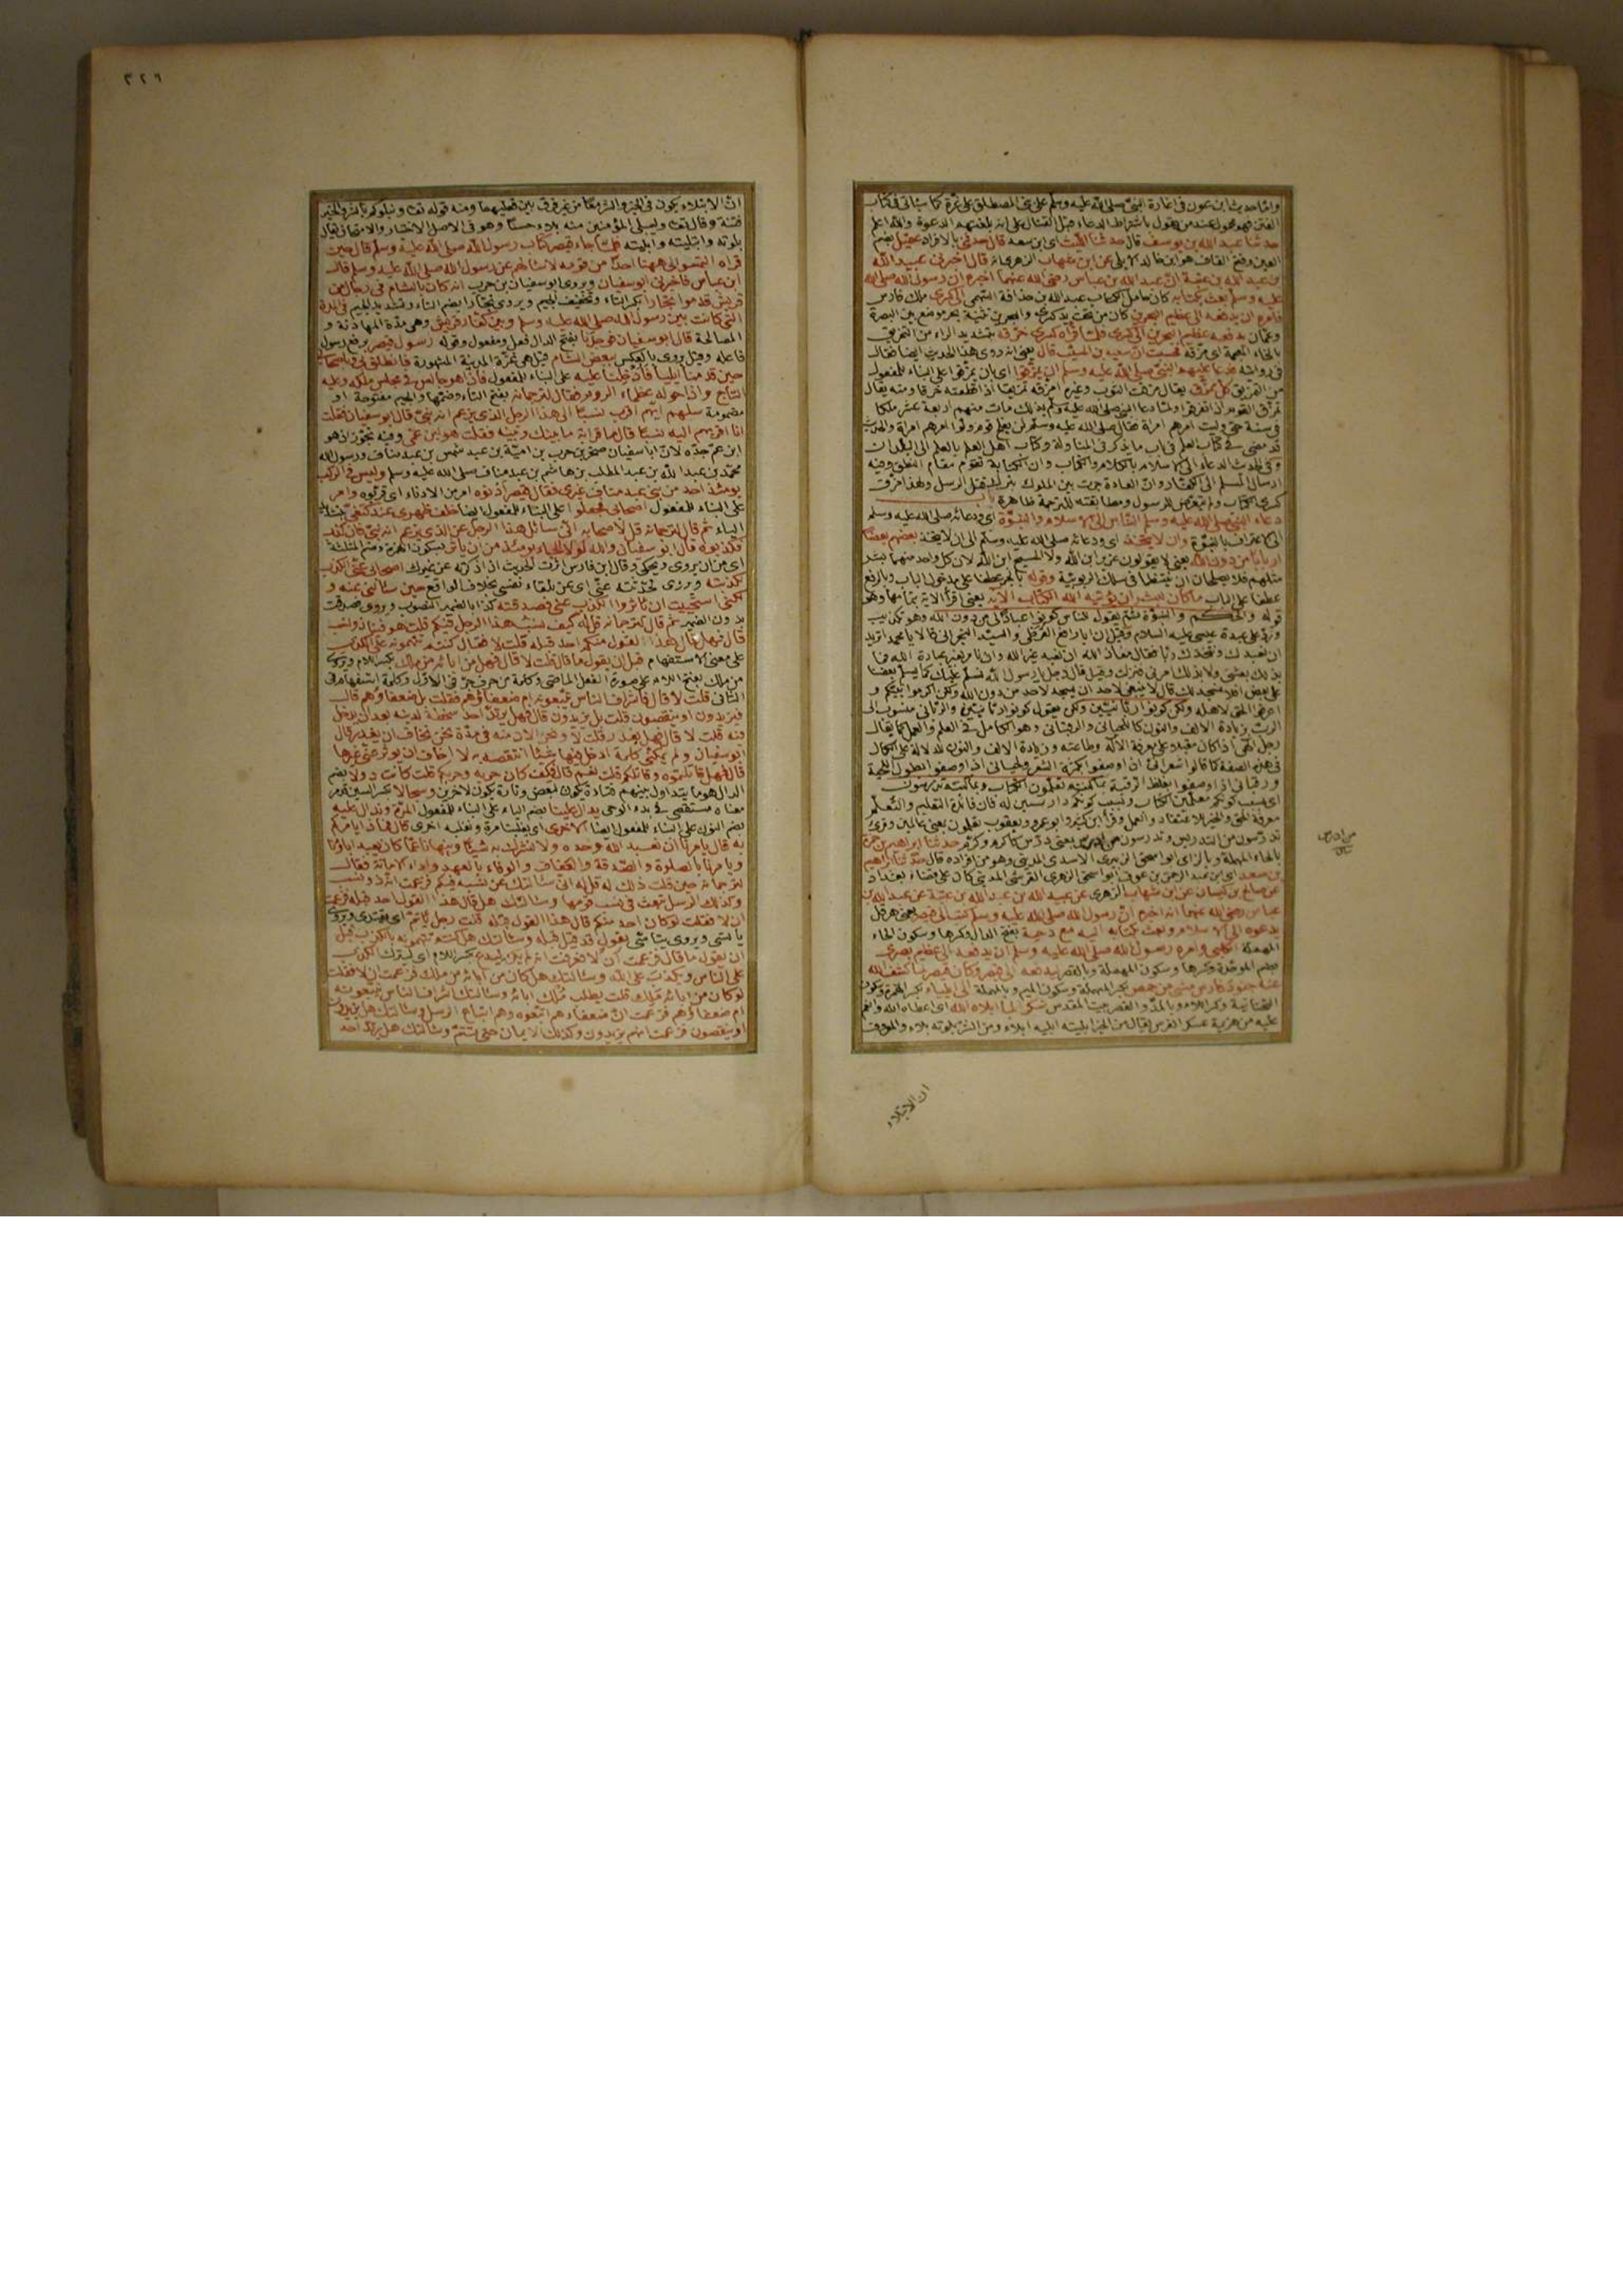 واما حديث ابن عون في اغارة النبي صلى الله عليه وسلم على بني المصطلق على غرة كما سيأتي في كتاب
الفتن فهو محمول عند من يقول باشتراط الدعاء قبل القتال على انه بلغتهم الدعوة والله اعلم
حدثنا عبد الله بن يوسف قال حدثنا الليث اي ابن سعد قال حدثني بالافراد عقيل بضم
العين وفتح القاف هو ابن خالد الايلي عن ابن شهاب الزهري انه قال اخبرني عبيد الله
بن عبد الله بن عتبة ان عبد الله بن عباس رضي الله عنهما اخبره ان رسول الله صلى الله
عليه وسلم بعث بكتابه كان حامل الكتاب عبد الله بن حذافة السهمي الى كسرى ملك فارس
فامره ان يدفعه الى عظيم البحرين كان من تحت يد كسرى والبحرين تثنية بحر موضع بين البصرة
وعمان يدفعه عظيم البحرين الى كسرى فلما قرأه كسرى خرقه بتشديد الراء من التخريق
بالخاء المعجمة اي مزقه فحسبت ان سعيد بن المسيب قال يعني انه روى هذا الحديث ايضا فقال
في روايته فدعا عليهم النبي صلى الله عليه وسلم ان يمزقوا اي بان يمزقوا على البناء للمفعول
من التمزيق كل ممزق يقال مزقت الثوب وغيره امزقه تمزيقا اذا قطعته خرقا ومنه يقال
تمزق القوم اذا افترقوا ولما دعا النبي صلى الله عليه وسلم بذلك مات منهم اربعة عشر ملكا
في سنة حتى وليت امرهم امرأة فقال صلى الله عليه وسلم لن يفلح قوم ولوا امرهم امرأة والحديث
قد مضى في كتاب العلم في باب ما يذكر في المناولة وكتاب اهل العلم بالعلم الى البلدان
وفي الحديث الدعاء الى الاسلام بالكلام والكتاب وان الكتابة تقوم مقام النطق وفيه
ارسال المسلم الى الكفار وان العادة جرت بين الملوك بترك قتل الرسل ولهذا مزق
كسرى الكتاب ولم يتعرض للرسول ومطابقته للترجمة ظاهرة باب
دعاء النبي صلى الله عليه وسلم الناس الى الاسلام والنبوة اي ودعائه صلى الله عليه وسلم
الى الاعتراف بالنبوة وان لا يتخذ اي ودعائه صلى الله عليه وسلم الى ان لا يتخذ بعضهم بعضا
اربابا من دون الله يعني لا يقولون عزير ابن الله ولا المسيح ابن الله لان كل واحد منهما بشر
مثلهم فلا يصلحان ان ينتظما في سلك الربوبية وقوله بالجر عطفا على مدخول الباب وبالرفع
عطفا على الباب ما كان لبشر ان يؤتيه الله الكتاب الآية يعني اقرأ الآية بتمامها وهو
قوله والحكم والنبوة ثم يقول للناس كونوا عبادا لي من دون الله وهو تكذيب
ورد على عبدة عيسى عليه السلام وقيل ان ابا رافع القرظي والسيد النجراني قالا يا محمد اتريد
ان نعبدك ونتخذك ربا فقال معاذ الله ان نعبد غير الله وان نأمر بغير عبادة الله فما
بذلك بعثني ولا بذلك امرني فنزلت وقيل قال رجل يا رسول الله نسلم عليك كما يسلم بعضنا
على بعض افلا نسجد لك قال لا ينبغي لاحد ان يسجد لاحد من دون الله ولكن اكرموا نبيكم و
اعرفوا الحق لاهله ولكن كونوا ربانيين ولكن يقول كونوا ربانيين والرباني منسوب الى
الرب بزيادة الالف والنون كاللحياني والرقباني وهو الكامل في العلم والعمل كما يقال
رجل الهي اذا كان مقبلا على معرفة الاله وطاعته وزيادة الالف والنون للدلالة على الكمال
في هذه الصفة كما قالوا شعراني اذا وصفوا بكثرة الشعر ولحياني اذا وصفوا بطول اللحية
ورقباني اذا وصفوا بغلظ الرقبة بما كنتم تعلمون الكتاب وبما كنتم تدرسون
اي بسبب كونكم معلمين الكتاب وبسبب كونكم دارسين له فان فائدة التعليم والتعلم
معرفة الحق والخير للاعتقاد والعمل وقرأ ابن كثير وابو عمرو ويعقوب تعلمون بمعنى عالمين وقرئ
تدرسون من التدريس وتدرسون من ادرس بمعنى درس كاكرم وكرم حدثنا ابراهيم بن حمزة
بالحاء المهملة وبالزاي ابو اسحق الزبيري الاسدي المديني وهو من افراده قال حدثنا ابراهيم
بن سعد اي ابن عبد الرحمن بن عوف ابو اسحق الزهري القرشي المديني كان على قضاء بغداد
عن صالح بن كيسان عن ابن شهاب الزهري عن عبيد الله بن عبد الله بن عتبة عن عبد الله بن
عباس رضي الله عنهما انه اخبره ان رسول الله صلى الله عليه وسلم كتب الى قيصر يعني هرقل
يدعوه الى الاسلام وبعث بكتابه اليه مع دحية بفتح الدال وكسرها وسكون الحاء
المهملة الكلبي وامره رسول الله صلى الله عليه وسلم ان يدفعه الى عظيم بصرى
بضم الموحدة وسكون المهملة وبالقصر ليدفعه الى قيصر وكان قيصر لما كشف الله
عنه جنود فارس مشى من حمص بكسر المهملة وسكون الميم وبالمهملة الى ايلياء بكسر الهمزة وسكون
التحتانية وكسر اللام وبالمد والقصر بيت المقدس شكرا لما ابلاه الله اي اعطاه الله وانعم
عليه من هزيمة عسكر الفرس يقال من الخير ابليته ابليه ابلاء ومن الشر بلوته بلاء والمعروف
من ادرس
ان الابتلاء
٣٢٦
ان الابتلاء يكون في الخير والشر معا من غير فرق بين فعليهما ومنه قوله تعالى ونبلوكم بالشر والخير
فتنة وقال تعالى وليبلي المؤمنين منه بلاء حسنا وهو في الاصل الاختبار والامتحان يقال
بلوته وابتليته وابليته فلما جاء قيصر كتاب رسول الله صلى الله عليه وسلم قال حين
قرأه التمسوا لي ههنا احدا من قومه لاسألهم عن رسول الله صلى الله عليه وسلم قال
ابن عباس فاخبرني ابو سفيان ويروى ابو سفيان بن حرب انه كان بالشام في رجال من
قريش قدموا تجارا بكسر التاء وتخفيف الجيم ويروى تجارا بضم التاء وتشديد الجيم في المدة
التي كانت بين رسول الله صلى الله عليه وسلم وبين كفار قريش وهي مدة المهادنة و
المصالحة قال ابو سفيان فوجدنا بفتح الدال فعل ومفعول وقوله رسول قيصر برفع رسول
فاعله وقيل يروى بالعكس ببعض الشام قيل هي غزة المدينة المشهورة فانطلق بي وباصحابي
حتى قدمنا ايلياء فأدخلنا عليه على البناء للمفعول فاذا هو جالس في مجلس ملكه وعليه
التاج واذا حوله عظماء الروم فقال لترجمانه بفتح التاء وضمها والجيم مفتوحة او
مضمومة سلهم ايهم اقرب نسبا الى هذا الرجل الذي يزعم انه نبي قال ابو سفيان فقلت
انا اقربهم اليه نسبا قال ما قرابة ما بينك وبينه فقلت هو ابن عمي وفيه تجوز اذ هو
ابن عم جده لان ابا سفيان صخر بن حرب بن امية بن عبد شمس بن عبد مناف ورسول الله
محمد بن عبد الله بن عبد المطلب بن هاشم بن عبد مناف صلى الله عليه وسلم وليس في الركب
يومئذ احد من بني عبد مناف غيري فقال قيصر ادنوه امر من الادناء اي قربوه وامر
على البناء للمفعول اصحابي فجعلوا على البناء للمفعول ايضا خلف ظهري عند كتفي بتشديد
الياء ثم قال لترجمانه قل لاصحابه اني سائل هذا الرجل عن الذي يزعم انه نبي فان كذب
فكذبوه قال ابو سفيان والله لولا الحياء يومئذ من ان يأثر بسكون الهمزة وضم المثلثة
اي من ان يروى ويحكى وقال ابن فارس اثرت الحديث اذا ذكرته عن غيرك اصحابي عني الكذب
لكذبته ويروى لحدثته عني اي عن تلقاء نفسي بخلاف الواقع حين سألني عنه و
لكني استحييت ان يأثروا الكذب عني فصدقته كذا بالضمير المنصوب ويروى فصدقت
بدون الضمير ثم قال لترجمانه قل له كيف نسب هذا الرجل فيكم قلت هو فينا ذو نسب
قال فهل قال هذا القول منكم احد قبله قلت لا فقال كنتم تتهمونه على الكذب
على معنى الاستفهام قبل ان يقول ما قال قلت لا قال فهل من آبائه من ملك بكسر اللام ويروى
من ملك بفتح اللام على صورة الفعل الماضي وكلمة من حرف جر في الاول وكلمة استفهام في
الثاني قلت لا قال فاشراف الناس يتبعونه ام ضعفاؤهم فقلت بل ضعفاؤهم قال
فيزيدون او ينقصون قلت بل يزيدون قال فهل يرتد احد سخطة لدينه بعد ان يدخل
فيه قلت لا قال فهل يغدر قلت لا ونحن الآن منه في مدة نحن نخاف ان يغدر قال
ابو سفيان ولم يمكني كلمة ادخل فيها شيئا انتقصه به لا اخاف ان يؤثر عني غيرها
قال فهل قاتلتموه وقاتلكم قلت نعم قال فكيف كان حربه وحربكم قلت كانت دولا بضم
الدال هو ما يتداول بينهم فتارة يكون لبعض وتارة يكون لآخرين وسجالا بكسر السين مر
معناه مستقصى في بدء الوحي يدال علينا بضم الياء على البناء للمفعول المرة وندال عليه
بضم النون على البناء للمفعول ايضا الاخرى اي يغلبنا مرة ونغلبه اخرى قال فماذا يأمركم
به قال يأمرنا ان نعبد الله وحده ولا نشرك به شيئا وينهانا عما كان يعبد آباؤنا
ويأمرنا بالصلوة والصدقة والعفاف والوفاء بالعهد واداء الامانة فقال
لترجمانه حين قلت ذلك له قل له اني سألتك عن نسبه فيكم فزعمت انه ذو نسب
وكذلك الرسل تبعث في نسب قومها وسألتك هل قال هذا القول احد قبله فزعمت
ان لا فقلت لو كان احد منكم قال هذا القول قبله قلت رجل يأتم اي يقتدي ويروى
يأتسي ويروى يتأسى بقول قد قيل قبله وسألتك هل كنتم تتهمونه بالكذب قبل
ان يقول ما قال فزعمت ان لا فعرفت انه لم يكن ليدع بكسر اللام اي ليترك الكذب
على الناس ويكذب على الله وسألتك هل كان من آبائه من ملك فزعمت ان لا فقلت
لو كان من آبائه ملك قلت يطلب ملك آبائه وسألتك اشراف الناس يتبعونه
ام ضعفاؤهم فزعمت ان ضعفاءهم اتبعوه وهم اتباع الرسل وسألتك هل يزيدون
او ينقصون فزعمت انهم يزيدون وكذلك الايمان حتى يتم وسألتك هل يرتد احد